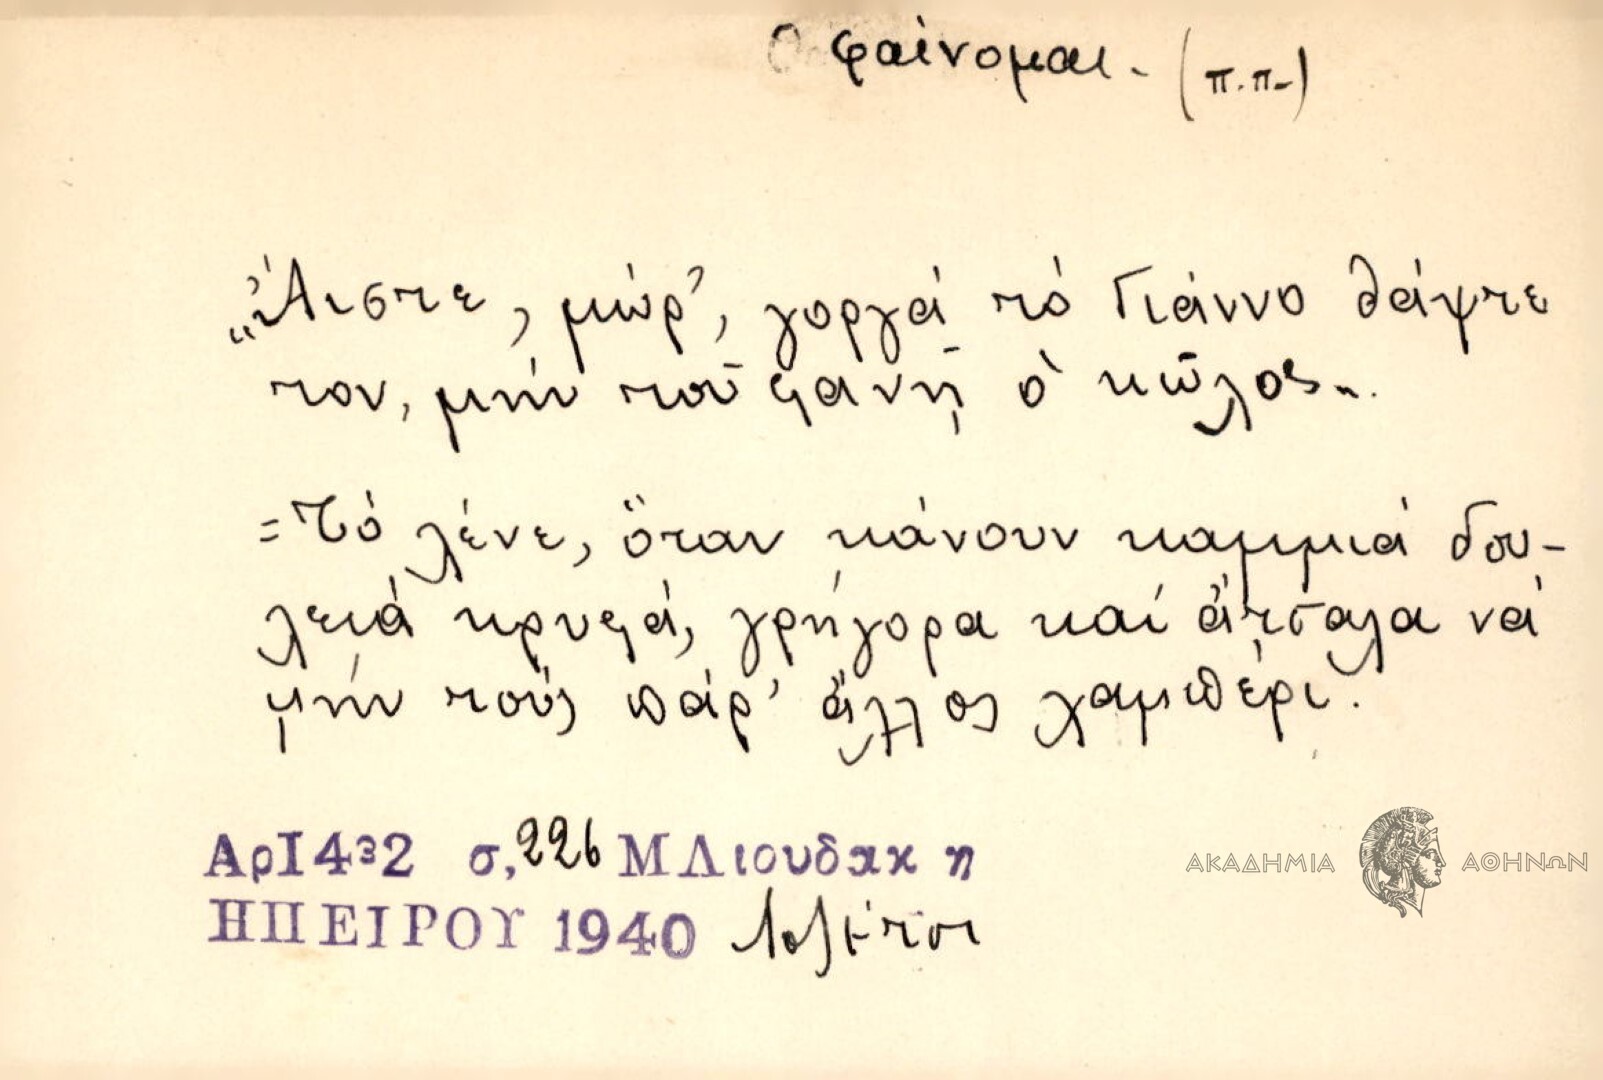 φαίνομαι. (π.π.)
„Ἄιστε, μώρ', γοργά τό Γιάννο θάψτε
τον, μήν τοῦ φανῇ ὁ κῶλος".
= Τό λένε, ὅταν κάνουν καμμιά δου-
λειά κρυφά, γρήγορα καί ἄτσαλα νά
μήν τούς πάρ' ἄλλος χαμπέρι.
Αρ 1432 σ, 226 Μ Λιουδακη
ΗΠΕΙΡΟΥ 1940
ΑΚΑΔΗΜΙΑ ΑΘΗΝΩΝ